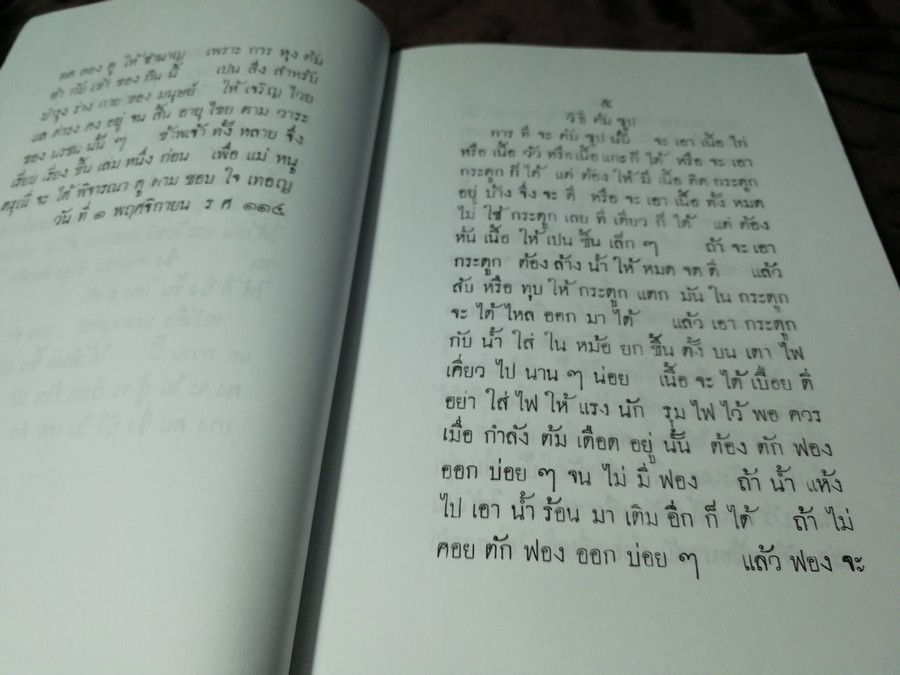 ทด ลอง ดู ให้ ชำนาญ เพราะ การ หุง ต้ม
ทำ กับ เข้า ของ กิน นี้ เปน สิ่ง สำหรับ
บำรุง ร่าง กาย ของ มนุษย์ ให้ เจริญ ไวย
แล ดำรง คง อยู่ จน สิ้น อายุ ไขย ตาม วาระ
ของ นรชน นั้น ๆ ข้าพเจ้า ทั้ง หลาย จึ่ง
เรียบ เรียง ขึ้น เล่ม หนึ่ง ก่อน เพื่อ แม่ หนู
ดรุณี จะ ได้ พิจารณา ดู ตาม ชอบ ใจ เทอญ
วัน ที่ ๑ พฤศจิกายน ร ศ ๑๑๔
๕
วิธี ต้ม ซุป
การ ที่ จะ ต้ม ซุป นั้น จะ เอา เนื้อ ไก่
หรือ เนื้อ วัว หรือ เนื้อ แกะ ก็ ได้ หรือ จะ เอา
กระดูก ก็ ได้ แต่ ต้อง ให้ มี เนื้อ ติด กระดูก
อยู่ บ้าง จึ่ง จะ ดี หรือ จะ เอา เนื้อ ทั้ง หมด
ไม่ ใช้ กระดูก เลย ที่ เดียว ก็ ได้ แต่ ต้อง
หั่น เนื้อ ให้ เปน ชิ้น เล็ก ๆ ถ้า จะ เอา
กระดูก ต้อง ล้าง น้ำ ให้ หมด จด ดี แล้ว
สับ หรือ ทุบ ให้ กระดูก แตก มัน ใน กระดูก
จะ ได้ ไหล ออก มา ได้ แล้ว เอา กระดูก
กับ น้ำ ใส่ ใน หม้อ ยก ขึ้น ตั้ง บน เตา ไฟ
เคี่ยว ไป นาน ๆ น่อย เนื้อ จะ ได้ เปื่อย ดี
อย่า ใส่ ไฟ ให้ แรง นัก รุม ไฟ ไว้ พอ ควร
เมื่อ กำลัง ต้ม เดือด อยู่ นั้น ต้อง ตัก ฟอง
ออก บ่อย ๆ จน ไม่ มี ฟอง ถ้า น้ำ แห้ง
ไป เอา น้ำ ร้อน มา เติม อีก ก็ ได้ ถ้า ไม่
คอย ตัก ฟอง ออก บ่อย ๆ แล้ว ฟอง จะ